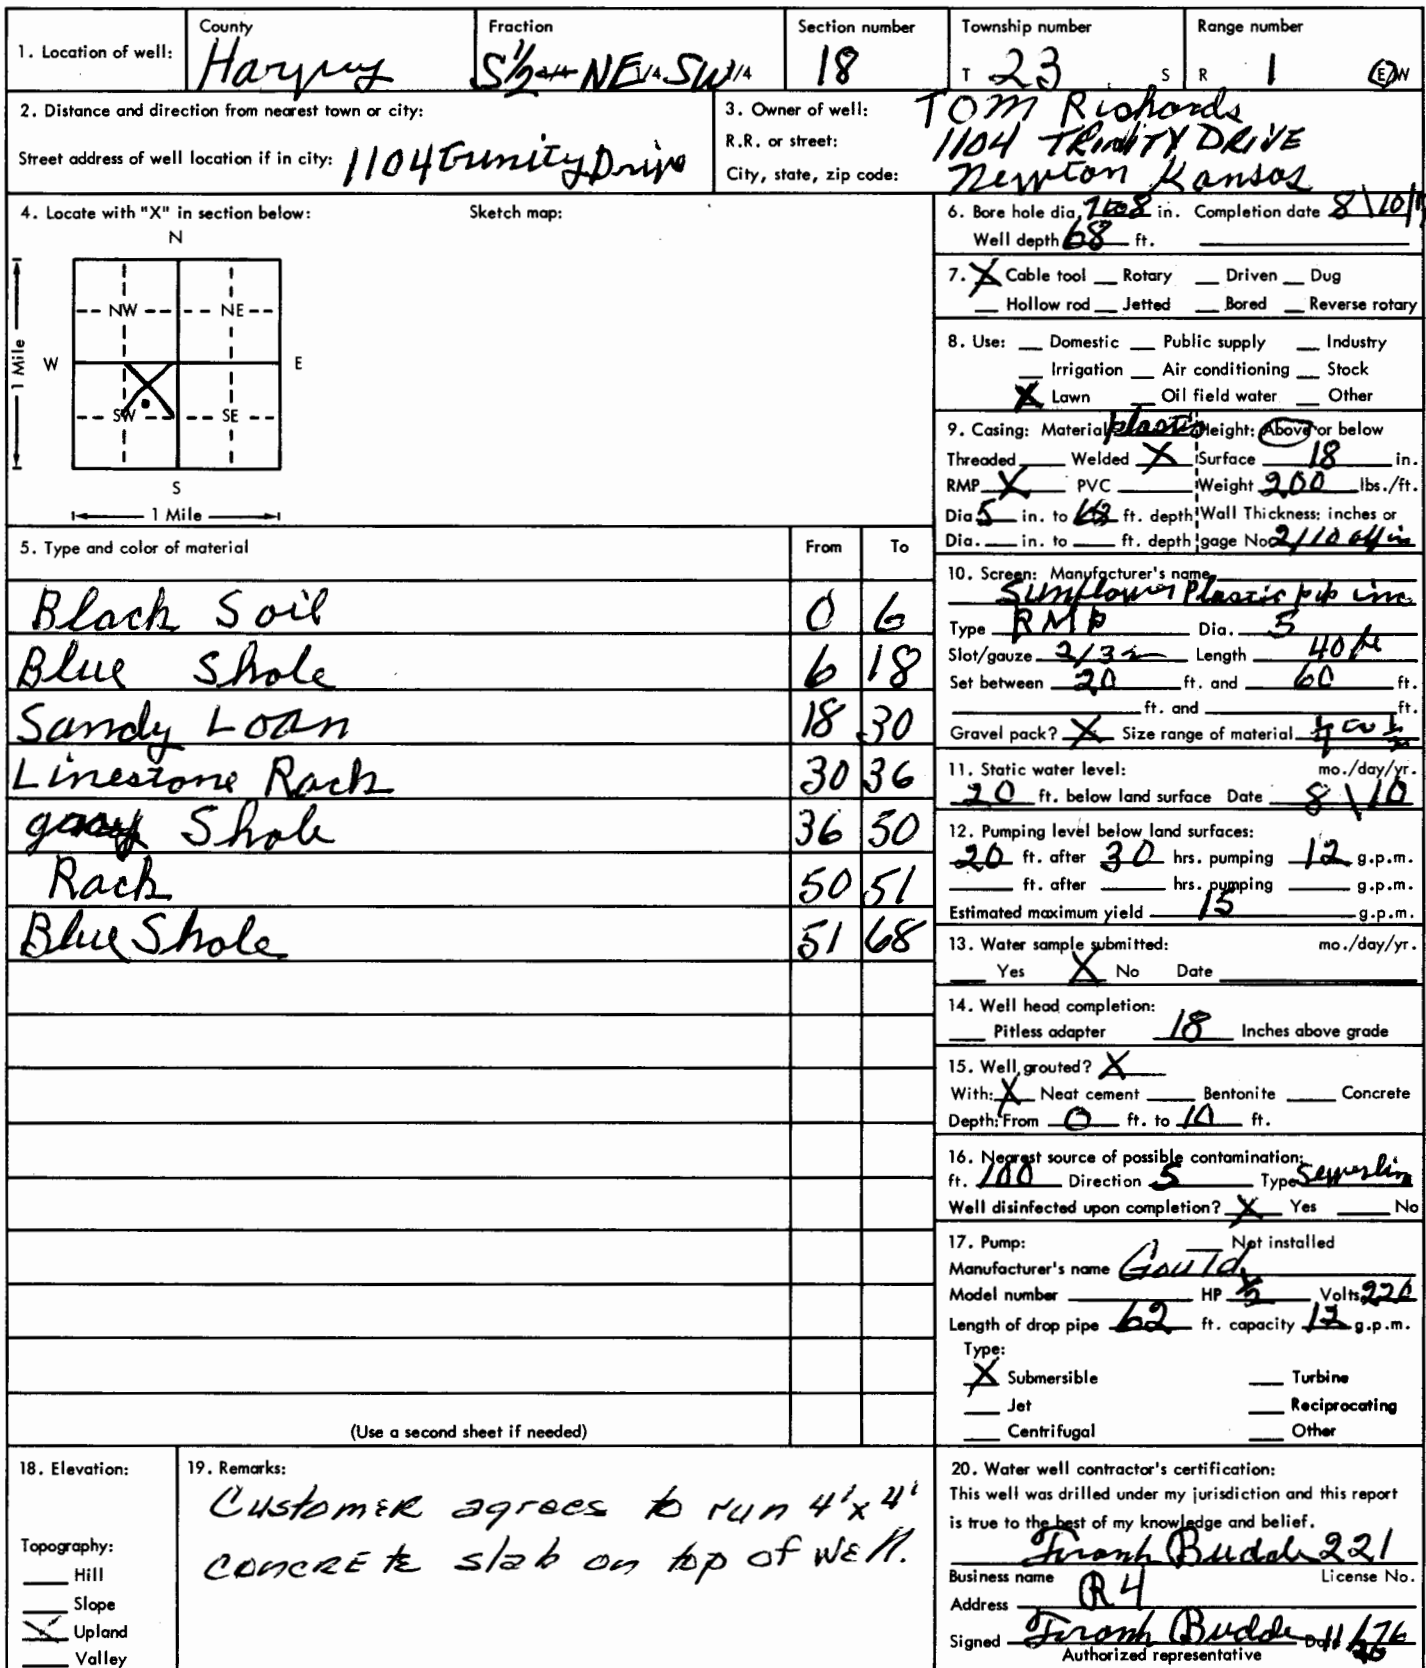 1. Location of well: County Harvey Fraction S 1/2 1/4 NE 1/4 SW 1/4 Section number 18 Township number T 23 S Range number R 1 E/W
2. Distance and direction from nearest town or city:
Street address of well location if in city: 1104 Trinity Drive
3. Owner of well: TOM Richards
R.R. or street: 1104 TRINITY DRIVE
City, state, zip code: Newton Kansas
4. Locate with "X" in section below: Sketch map:
N
NW NE
W E
1 Mile
SW SE
S
1 Mile
5. Type and color of material From To
Black Soil 0 6
Blue Shole 6 18
Sandy Loan 18 30
Linestone Rock 30 36
gray Shole 36 50
Rock 50 51
Blue Shole 51 68
(Use a second sheet if needed)
6. Bore hole dia. in. Completion date 8\10/
Well depth 68 ft.
7. X Cable tool __ Rotary __ Driven __ Dug
__ Hollow rod __ Jetted __ Bored __ Reverse rotary
8. Use: __ Domestic __ Public supply __ Industry
__ Irrigation __ Air conditioning __ Stock
X Lawn __ Oil field water __ Other
9. Casing: Material plastic Height: Above or below
Threaded ___ Welded X Surface 18 in.
RMP X PVC ___ Weight 200 lbs./ft.
Dia. 5 in. to ft. depth Wall Thickness: inches or
Dia. ___ in. to ___ ft. depth gage No. 2/10 of in
10. Screen: Manufacturer's name
Sunflower Plastic pip inc
Type RMP Dia. 5
Slot/gauze 2/32 Length 40 ft
Set between 20 ft. and 60 ft.
___ ft. and ___ ft.
Gravel pack? X Size range of material
11. Static water level: mo./day/yr.
20 ft. below land surface Date 8\10
12. Pumping level below land surfaces:
20 ft. after 30 hrs. pumping 12 g.p.m.
___ ft. after ___ hrs. pumping ___ g.p.m.
Estimated maximum yield 15 g.p.m.
13. Water sample submitted: mo./day/yr.
___ Yes X No Date ___
14. Well head completion:
___ Pitless adapter 18 Inches above grade
15. Well grouted? X
With: X Neat cement ___ Bentonite ___ Concrete
Depth: From 0 ft. to 10 ft.
16. Nearest source of possible contamination:
ft. 100 Direction S Type
Well disinfected upon completion? X Yes ___ No
17. Pump: Not installed
Manufacturer's name Gould
Model number ___ HP Volts 220
Length of drop pipe 62 ft. capacity 12 g.p.m.
Type:
X Submersible ___ Turbine
___ Jet ___ Reciprocating
___ Centrifugal ___ Other
18. Elevation:
Topography:
___ Hill
___ Slope
X Upland
___ Valley
19. Remarks:
Customer agrees to run 4'x4'
concrete slab on top of well.
20. Water well contractor's certification:
This well was drilled under my jurisdiction and this report
is true to the best of my knowledge and belief.
Frank Budde 221
Business name License No.
Address R4
Signed Frank Budde Date
Authorized representative